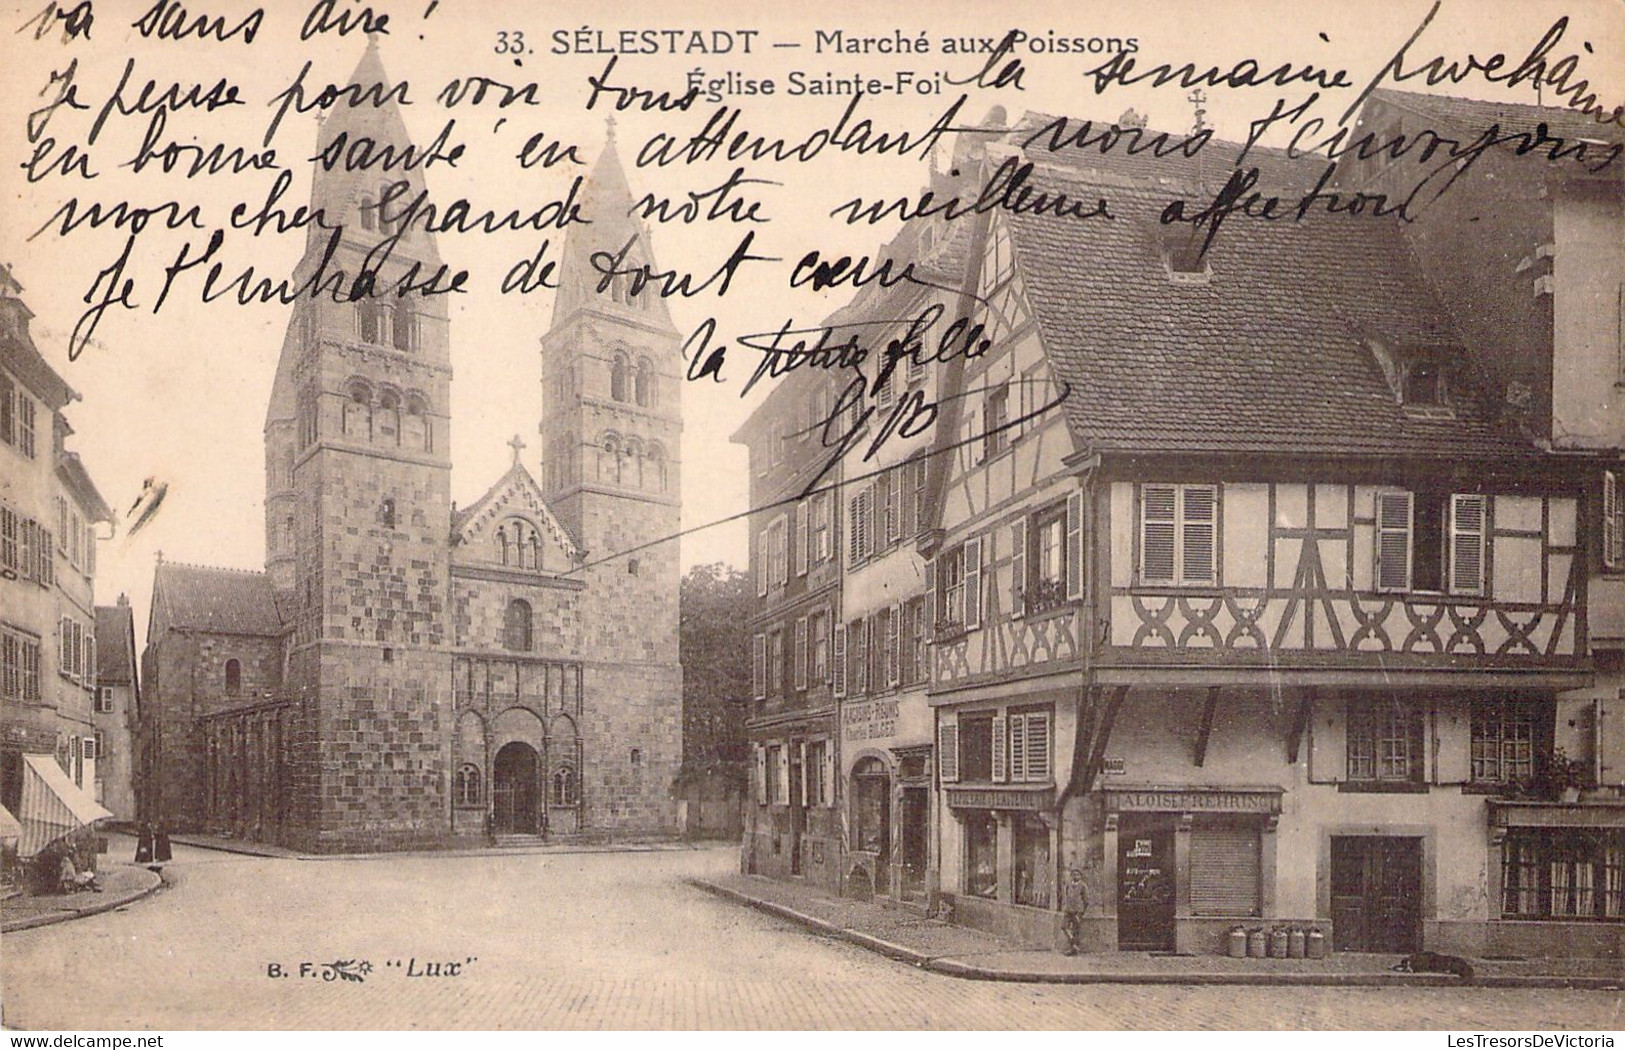 va sans dire !
33. SÉLESTADT — Marché aux Poissons
Église Sainte-Foi
Je pense pour voir tous la semaine prochaine
en bonne santé en attendant nous t'envoyons
mon cher Grande notre meilleure affection.
Je t'embrasse de tout cœur
la petite fille
GB
MAGGI
Charles BILGER
ALOISE FREHRING
B. F. "Lux"
LesTresorsDeVictoria